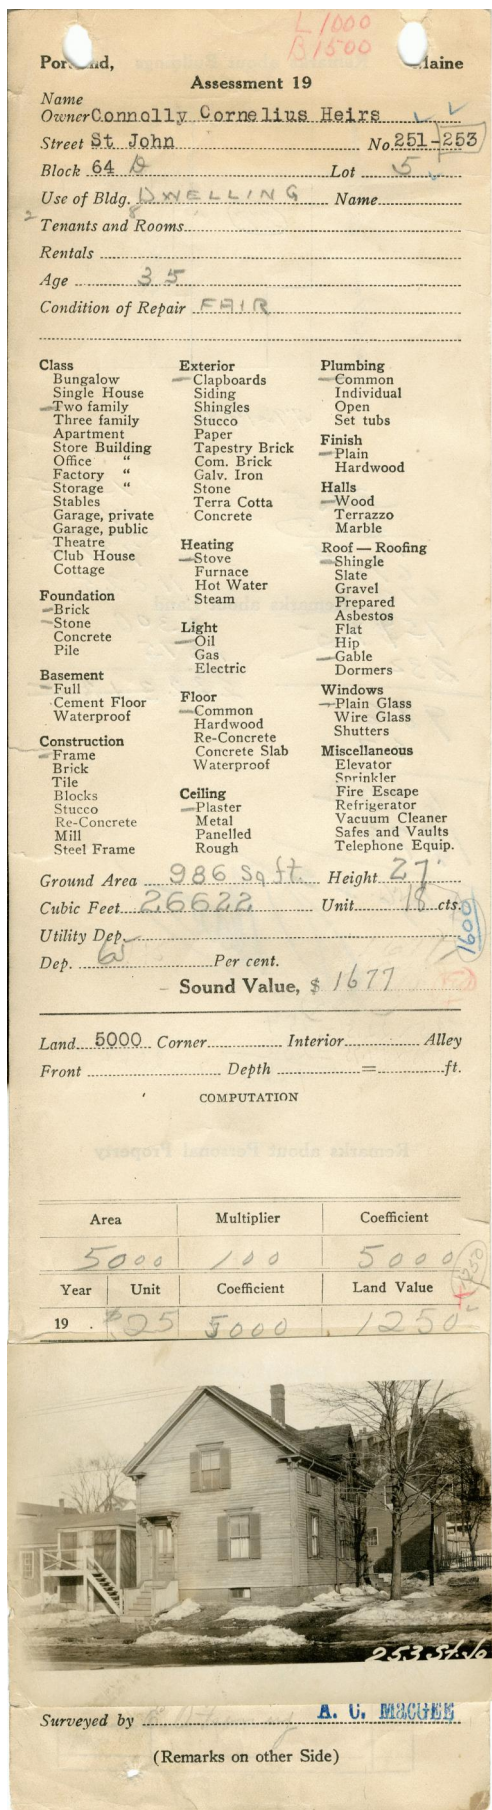 L 1000
B 1500
Portland, Maine
Assessment 19
Name
Owner Connolly Cornelius Heirs
Street St John No. 251-253
Block 64 D Lot 5
Use of Bldg. DWELLING Name
2 8
Tenants and Rooms
Rentals
Age 35
Condition of Repair FAIR
Class
Bungalow
Single House
Two family
Three family
Apartment
Store Building
Office "
Factory "
Storage "
Stables
Garage, private
Garage, public
Theatre
Club House
Cottage
Foundation
Brick
Stone
Concrete
Pile
Basement
Full
Cement Floor
Waterproof
Construction
Frame
Brick
Tile
Blocks
Stucco
Re-Concrete
Mill
Steel Frame
Exterior
Clapboards
Siding
Shingles
Stucco
Paper
Tapestry Brick
Com. Brick
Galv. Iron
Stone
Terra Cotta
Concrete
Heating
Stove
Furnace
Hot Water
Steam
Light
Oil
Gas
Electric
Floor
Common
Hardwood
Re-Concrete
Concrete Slab
Waterproof
Ceiling
Plaster
Metal
Panelled
Rough
Plumbing
Common
Individual
Open
Set tubs
Finish
Plain
Hardwood
Halls
Wood
Terrazzo
Marble
Roof — Roofing
Shingle
Slate
Gravel
Prepared
Asbestos
Flat
Hip
Gable
Dormers
Windows
Plain Glass
Wire Glass
Shutters
Miscellaneous
Elevator
Sprinkler
Fire Escape
Refrigerator
Vacuum Cleaner
Safes and Vaults
Telephone Equip.
Ground Area 986 Sq ft. Height 27'
Cubic Feet 26622 Unit 18 cts.
1600
Utility Dep.
Dep. Per cent.
Sound Value, $ 1677
Land 5000 Corner Interior Alley
Front Depth = ft.
COMPUTATION
Remarks about Personal Property
Area Multiplier Coefficient
5000 100 5000
1250
Year Unit Coefficient Land Value
19 . $25 5000 1250
253 St. Jo
Surveyed by A. C. MacGEE
(Remarks on other Side)